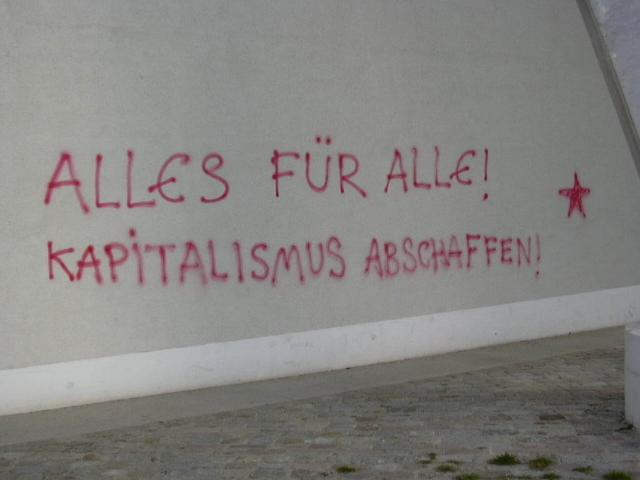 ALLES FÜR ALLE!
KAPITALISMUS ABSCHAFFEN!